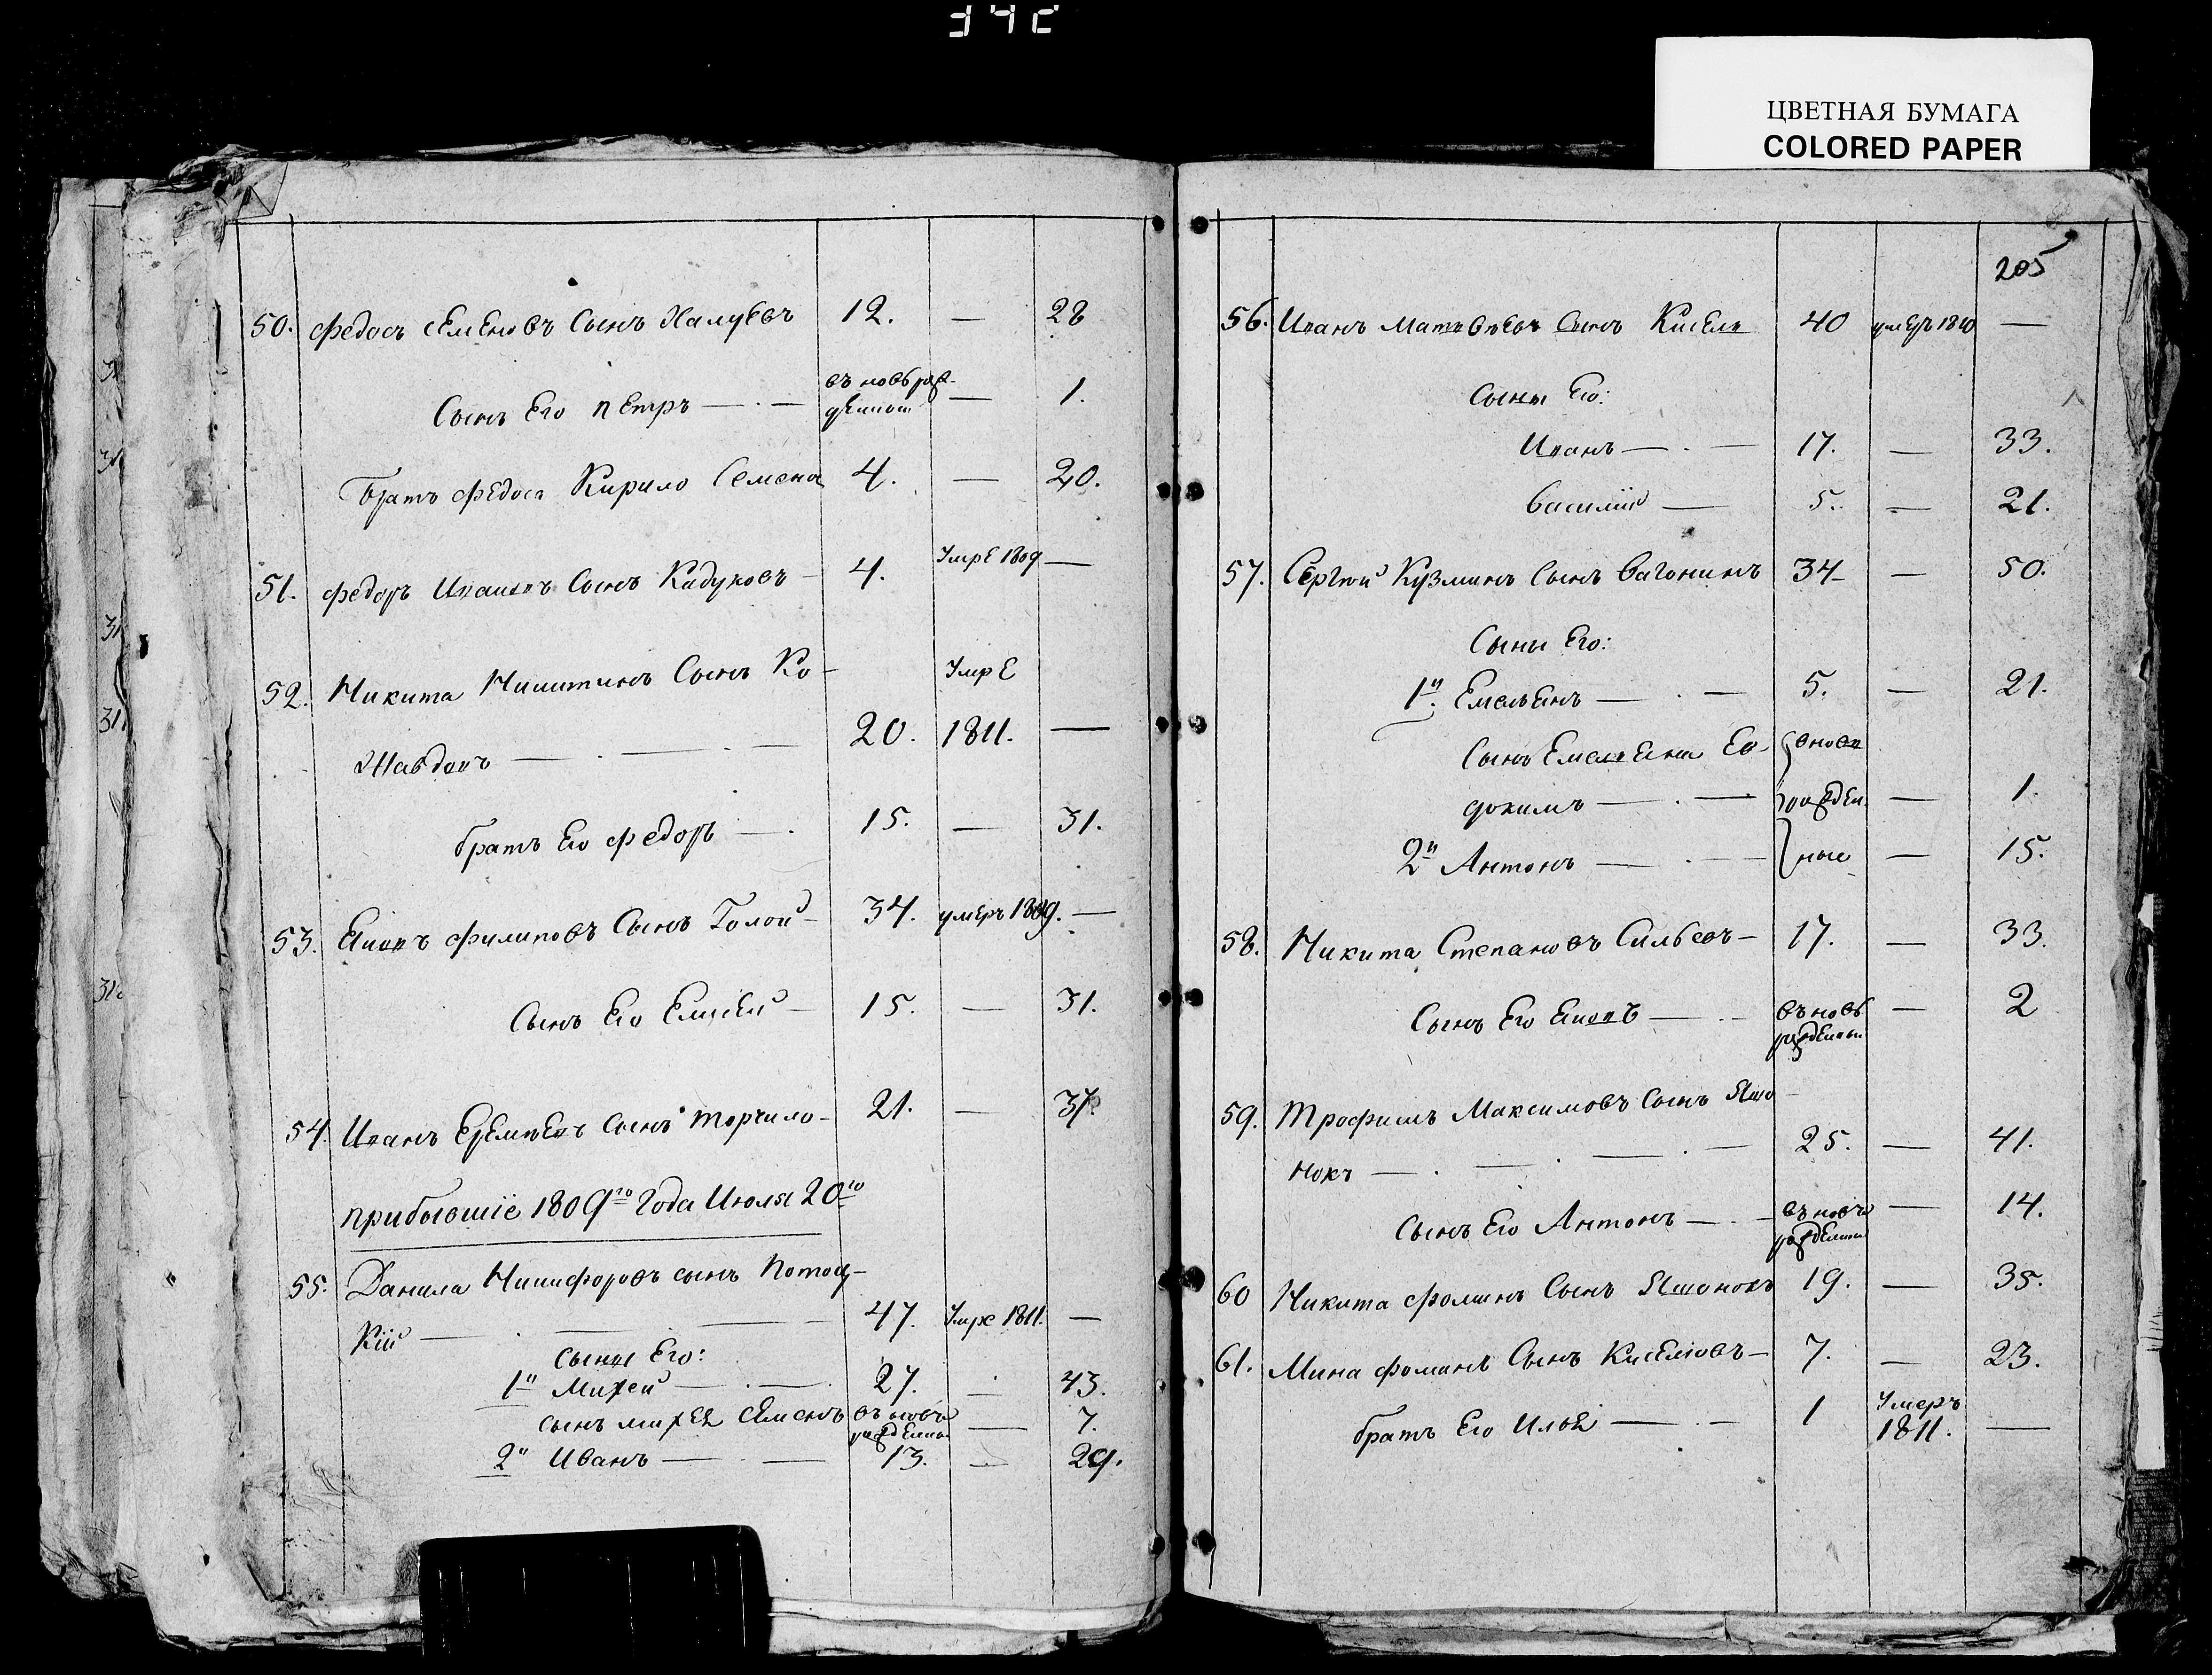 ЦВЕТНАЯ БУМАГА
COLORED PAPER
50. Федосъ Семеновъ Сынъ Халуевъ 12. — 28
Сынъ Его Петръ — въ новь рож-денный — 1.
Братъ Федоса Кирило Семена 4. — 20.
51. Федоръ Ивановъ Сынъ Кадуковъ — 4. Умре 1809 —
52. Никита Никитинъ Сынъ Ко- Умре
Жавдовъ — 20. 1811. —
братъ Его Федоръ — 15. — 31.
53. Яковъ Филиповъ Сынъ Голой — 34. умеръ 1809. —
Сынъ Его Елисей — 15. — 31.
54. Иванъ Еремѣевъ Сынъ Торчило — 21. — 37
прибывшіе 1809го Года Июля 20го
55. Данила Никифоровъ сынъ Потоц-
Кій — 47. Умре 1811. —
Сыны Его:
1й Михей — 27. — 43.
сынъ михея Семенъ въ новь рожденны — 7.
2й Иванъ — 13. — 29.
205
56. Иванъ Матвѣевъ Сынъ Кисель 40 умеръ 1810 —
Сыны Его:
Иванъ — 17. — 33.
Василій — 5. — 21.
57. Сергѣй Кузминъ Сынъ Вагонинъ 34 — 50.
Сыны Его:
1й Емельянъ — 5. — 21.
Сынъ Емельяна Ев- вновь
докимъ — рожден — 1.
2й Антонъ — ные — 15.
58. Никита Степановъ Сильевъ — 17. — 33.
Сынъ Его Яковъ — въ новь рожденны — 2
59. Трофимъ Максимовъ Сынъ Яшо-
нокъ — 25. — 41.
Сынъ Его Антонъ — въ новь рожденны — 14.
60 Никита Фоминъ Сынъ Яшонокъ 19. — 35.
61. Мина Фоминъ Сынъ Киселіовъ — 7. — 23.
братъ Его Илья — 1 Умеръ 1811. —